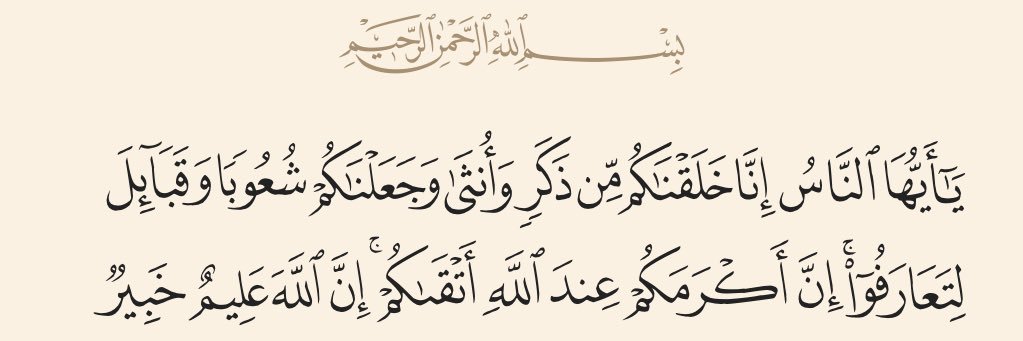 بِسْمِ ٱللَّهِ ٱلرَّحْمَٰنِ ٱلرَّحِيمِ
يَٰٓأَيُّهَا ٱلنَّاسُ إِنَّا خَلَقْنَٰكُم مِّن ذَكَرِ وَأُنثَىٰ وَجَعَلْنَٰكُمْ شُعُوبَا وَقَبَآئِلَ
لِتَعَارَفُوٓا۟ۚ إِنَّ أَكْرَمَكُمْ عِندَ ٱللَّهِ أَتْقَىٰكُمْۚ إِنَّ ٱللَّهَ عَلِيمٌ خَبِيرٌ